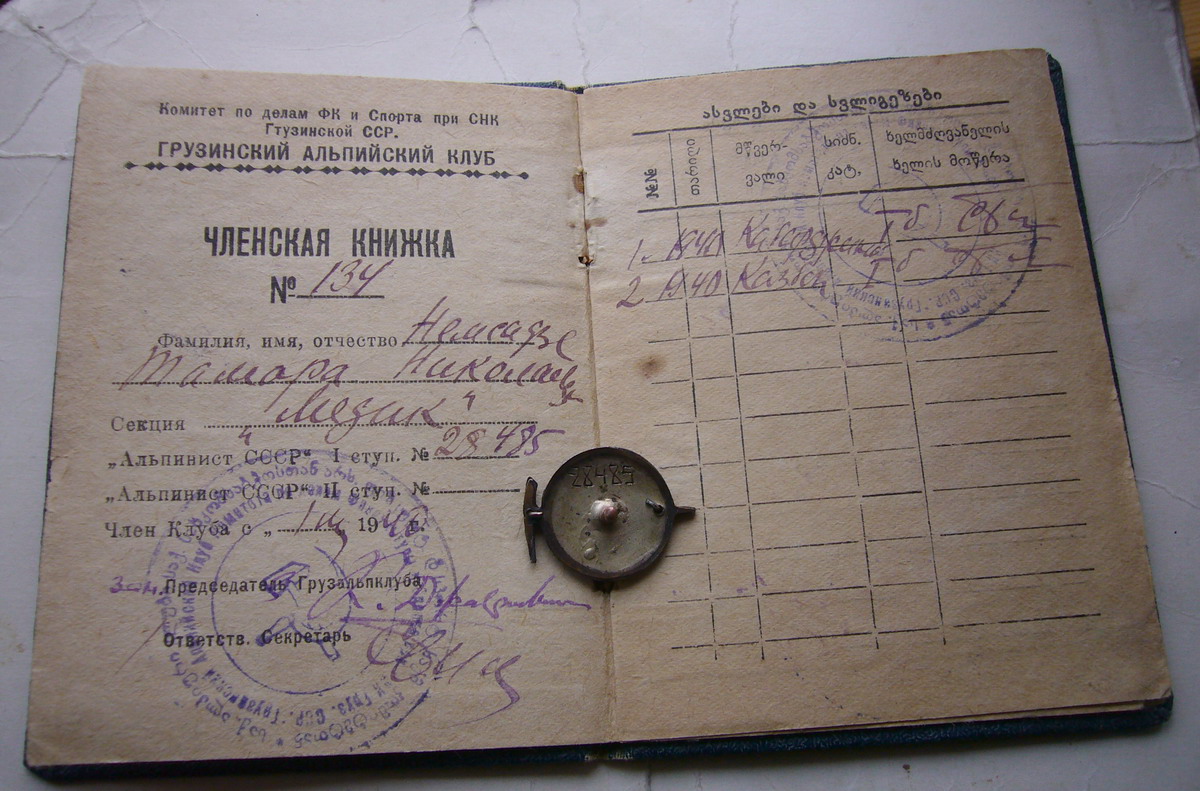 Комитет по делам ФК и Спорта при СНК
Гтузинской ССР.
ГРУЗИНСКИЙ АЛЬПИЙСКИЙ КЛУБ
ЧЛЕНСКАЯ КНИЖКА
№ 134
Фамилия, имя, отчество Немсадзе
Тамара Николаевна
Секция „Медик“
„Альпинист СССР“ I ступ. № 28485
„Альпинист СССР“ II ступ. №
Член Клуба с „ 1 19 г.
Зам. Председатель Грузальпклуба
Ответств. Секретарь
28485
ასვლები და სვლიგეზები
№№ თარიღი მწვერვალი სიძნ. კატ. ხელმძღვანელის ხელის მოწერა
1. 1940 Iб
2. 1940 Казбек Iб